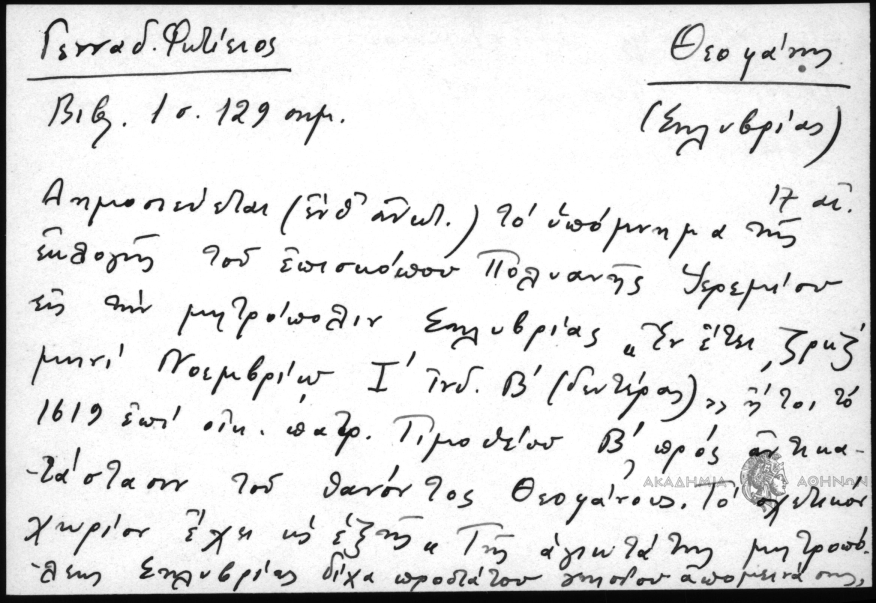 Γενναδ. Φυτίειος Θεοφάνης
Βιβλ. 1 σ. 129 σημ. (Σηλυβρίας)
17 αἰ.
Δημοσιεύεται (ἔνθ' ἀνωτ.) τὸ ὑπόμνημα τῆς
ἐκλογῆς τοῦ ἐπισκόπου Πολυανῆς Ἱερεμίου
εἰς τὴν μητρόπολιν Σηλυβρίας "Ἐν ἔτει ͵ζρκζ΄
μηνὶ Νοεμβρίῳ Ι΄ ἰνδ. Β΄ (δευτέρας)" ἤτοι τὸ
1619 ἐπὶ οἰκ. πατρ. Τιμοθέου Β΄, πρὸς ἀντικα-
-τάστασιν τοῦ θανόντος Θεοφάνους. Τὸ σχετικὸν
ΑΚΑΔΗΜΙΑ ΑΘΗΝΩΝ
χωρίον ἔχει ὡς ἑξῆς "Τῆς ἁγιωτάτης μητροπό-
-λεως Σηλυβρίας δίχα προστάτου γνησίου ἀπομεινάσης,